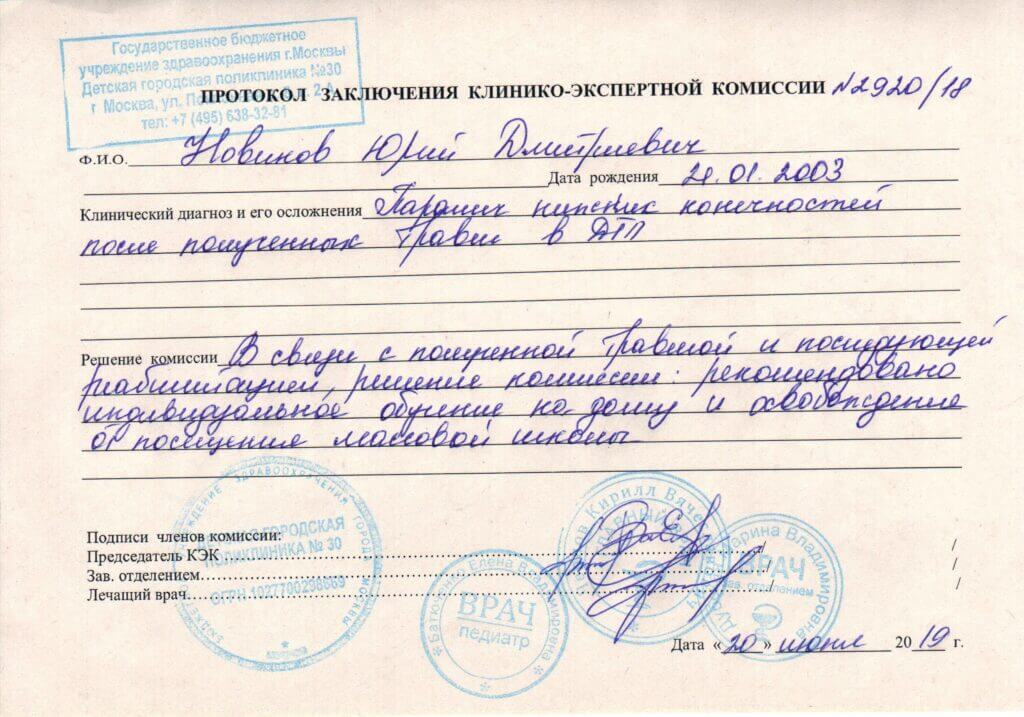 Государственное бюджетное
учреждение здравоохранения г.Москвы
Детская городская поликлиника №30
г Москва, ул. 2-А
тел: +7 (495) 638-32-81
ПРОТОКОЛ ЗАКЛЮЧЕНИЯ КЛИНИКО-ЭКСПЕРТНОЙ КОМИССИИ №2920/18
Ф.И.О. Новиков Юрий Дмитриевич
Дата рождения 21.01.2003
Клинический диагноз и его осложнения Паралич нижних конечностей
после полученных травм в ДТП
Решение комиссии В связи с полученной травмой и последующей
реабилитацией, решение комиссии: рекомендовано
индивидуальное обучение на дому и освобождение
от посещения массовой школы
ЗДРАВООХРАНЕНИЯ ГОРОДА МОСКВЫ
ДЕТСКАЯ ГОРОДСКАЯ
ПОЛИКЛИНИКА № 30
ОГРН 1027700298869
Подписи членов комиссии:
Председатель КЭК / /
Зав. отделением / /
Лечащий врач / /
Елена Владимировна
ВРАЧ
педиатр
Кирилл
Марина Владимировна
ВРАЧ
зав. отделением
Дата «20» июня 2019 г.